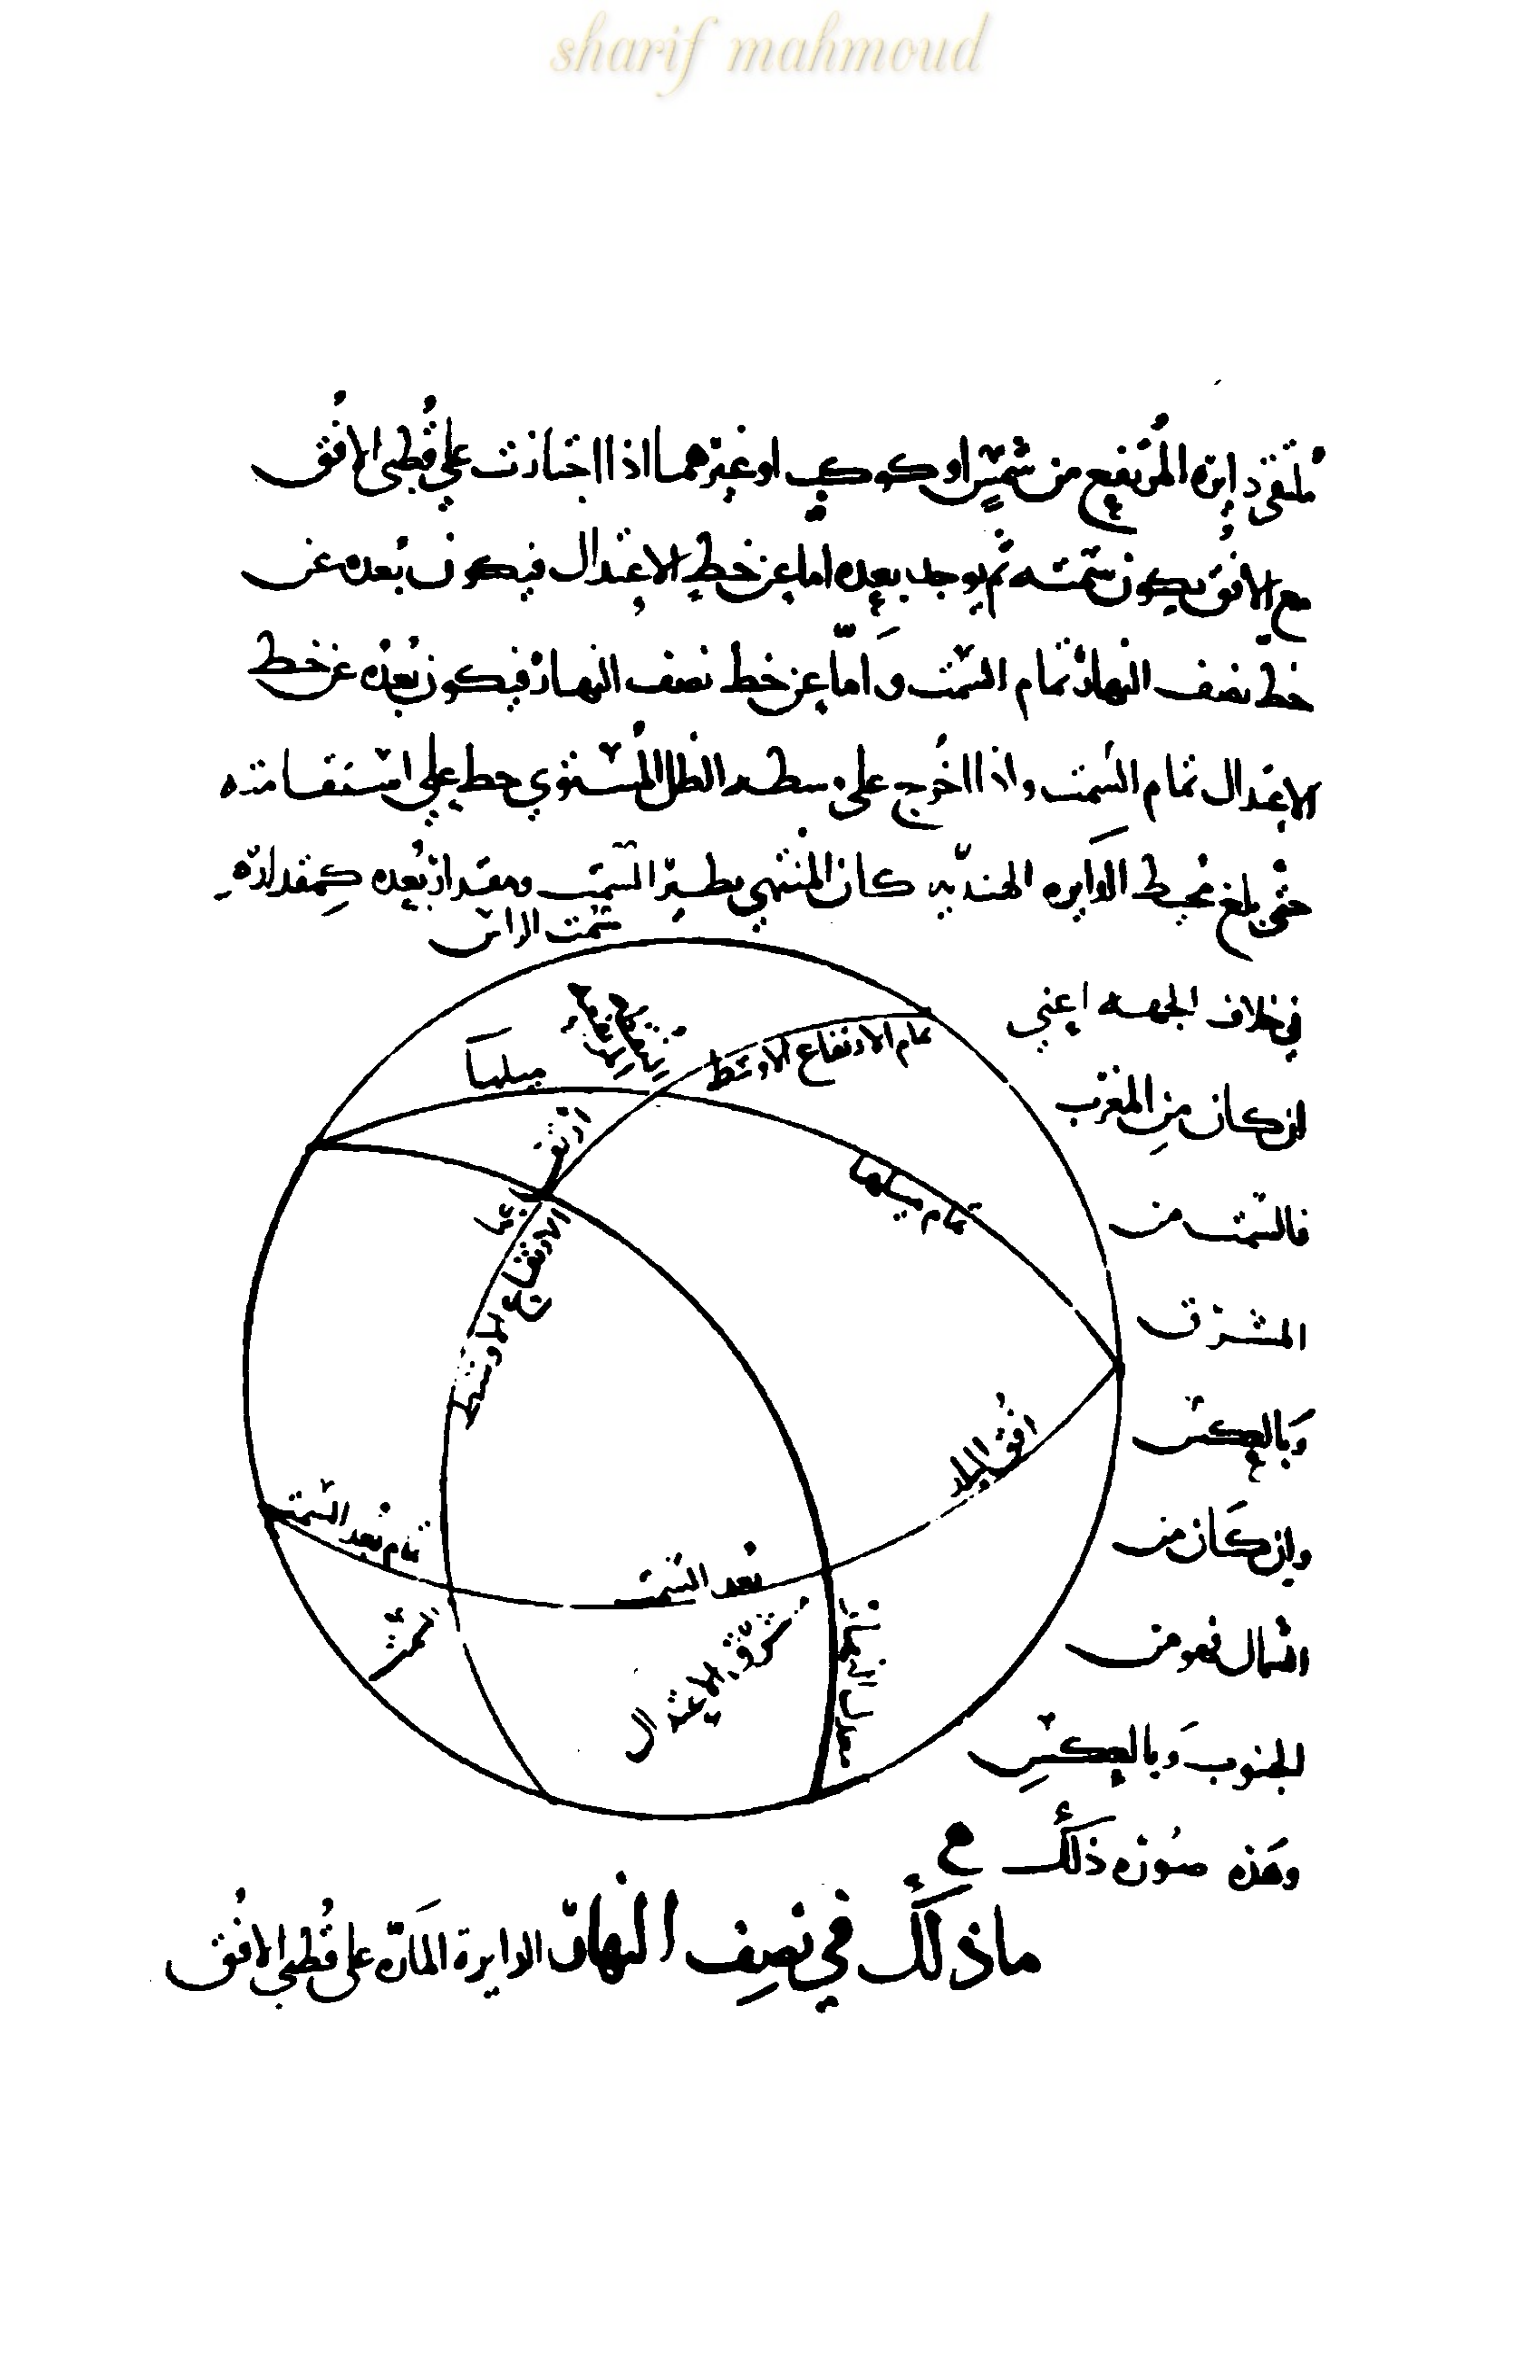 sharif mahmoud
ملتقى دايرة المرتفع من شمس او كوكب او غيرهما اذا اجتازت على قطبي الافق
مع الافق يكون سمته ثم يوجد بعده اما عن خط الاعتدال فيكون بعده عن
خط نصف النهار تمام السمت واما عن خط نصف النهار فيكون بعده عن خط
الاعتدال تمام السمت واذا اخرج على سطح الظل المستوي خط على استقامته
حتى بلغ محيط الدايره الهنديه كان المنتهي نظير السمت ومقدار بعده كمقداره
سمت الراس
في خلاف الجهه اعني
ان كان من المغرب
فالسمت من
المشرق
وبالعكس
وان كان من
الشمال فهو من
الجنوب وبالعكس
وهذه صورة ذلك
تمام الارتفاع الاوسط
ميلها
تمام ميلها
الارتفاع الاوسط
افق البلد
تمام بعد السمت
بعد السمت
مشرق الاعتدال
معدل النهار
ما ذلك في نصف النهار الدايرة المارة على قطبي الافق